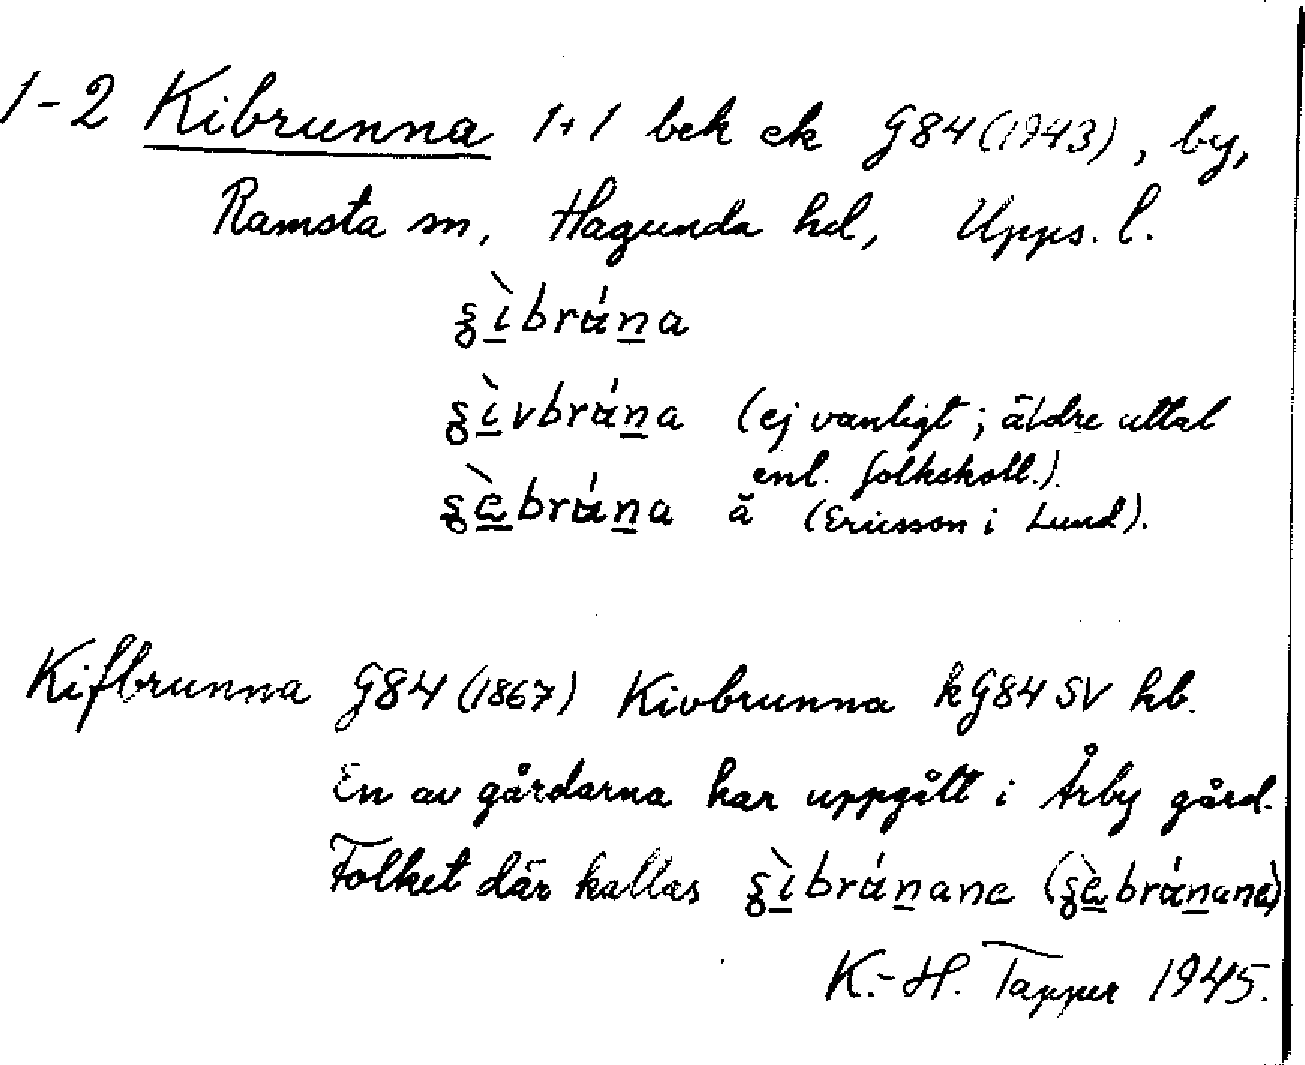 1-2 Kibrunna 1+1 bek ek G84 (1943), by,
Ramsta sn, Hagunda hd, Upps. l.
ʂìbrúna
ʂìvbrúna (ej vanligt; äldre uttal
enl. folkskoll.).
ʂèbrúna ä (Ericsson i Lund).
Kifbrunna G84 (1867) Kivbrunna kG84 SV hb.
En av gårdarna har uppgått i Årby gård.
Folket där kallas ʂìbrúnane (ʂèbrúnane)
K.-H. Tapper 1945.